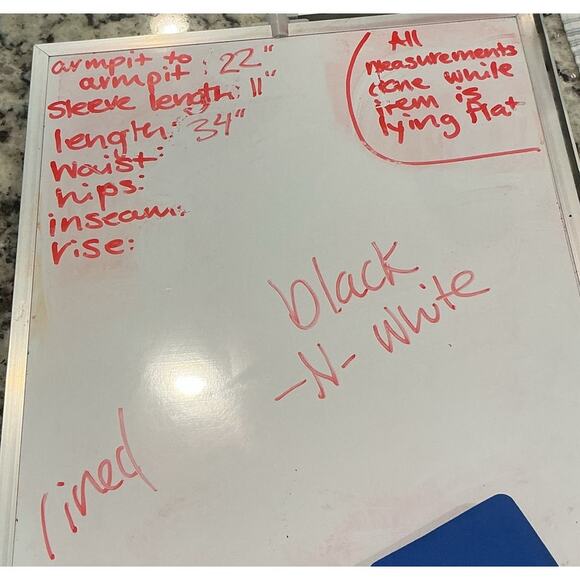 armpit to
armpit: 22"
sleeve length: 11"
length: 34"
waist:
hips:
inseam:
rise:
All
measurements
done while
item is
lying flat
black
-N- White
lined